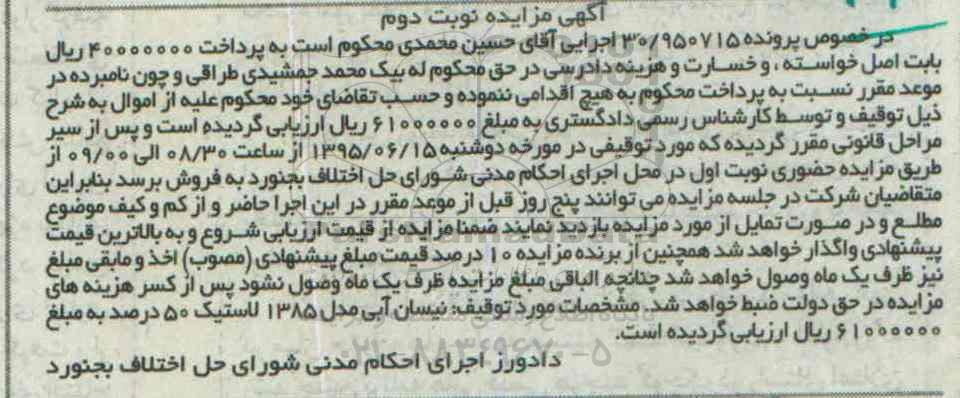 آگهی مزایده نوبت دوم
در خصوص پرونده ۳۰/۹۵۰۷۱۵ اجرایی آقای حسین محمدی محکوم است به پرداخت ۴۰۰۰۰۰۰۰ ریال
بابت اصل خواسته ، و خسارت و هزینه دادرسی در حق محکوم له بیک محمد جمشیدی طراقی و چون نامبرده در
موعد مقرر نسبت به پرداخت محکوم به هیچ اقدامی ننموده و حسب تقاضای خود محکوم علیه از اموال به شرح
ذیل توقیف و توسط کارشناس رسمی دادگستری به مبلغ ۶۱۰۰۰۰۰۰ ریال ارزیابی گردیده است و پس از سیر
مراحل قانونی مقرر گردیده که مورد توقیفی در مورخه دوشنبه ۱۳۹۵/۰۶/۱۵ از ساعت ۰۸/۳۰ الی ۰۹/۰۰ از
طریق مزایده حضوری نوبت اول در محل اجرای احکام مدنی شورای حل اختلاف بجنورد به فروش برسد بنابراین
متقاضیان شرکت در جلسه مزایده می توانند پنج روز قبل از موعد مقرر در این اجرا حاضر و از کم و کیف موضوع
مطلع و در صورت تمایل از مورد مزایده بازدید نمایند ضمنا مزایده از قیمت ارزیابی شروع و به بالاترین قیمت
پیشنهادی واگذار خواهد شد همچنین از برنده مزایده ۱۰ درصد قیمت مبلغ پیشنهادی (مصوب) اخذ و مابقی مبلغ
نیز ظرف یک ماه وصول خواهد شد چنانچه الباقی مبلغ مزایده ظرف یک ماه وصول نشود پس از کسر هزینه های
مزایده در حق دولت ضبط خواهد شد. مشخصات مورد توقیف: نیسان آبی مدل ۱۳۸۵ لاستیک ۵۰ درصد به مبلغ
۶۱۰۰۰۰۰۰ ریال ارزیابی گردیده است.
دادورز اجرای احکام مدنی شورای حل اختلاف بجنورد